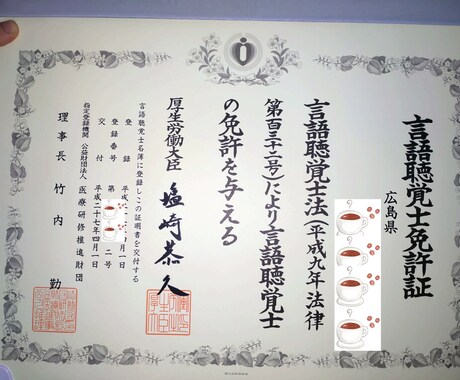 言語聴覚士免許証
広島県
言語聴覚士法(平成九年法律
第百三十二号)により言語聴覚士
の免許を与える
厚生労働大臣 塩崎恭久
言語聴覚士名簿に登録しこの証明書を交付する
登録 平 月一日
登録番号 第 二号
交付 平成二十七年四月一日
指定登録機関 公益財団法人 医療研修推進財団
理事長 竹内 勤